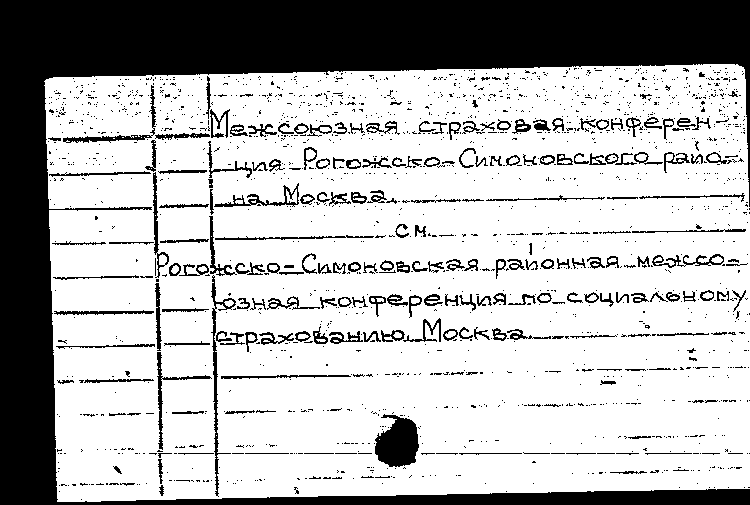 Межсоюзная страховая конферен-
ция Рогожско-Симоновского райо-
на. Москва.
см.
Рогожско-Симоновская районная межсо-
юзная конференция по социальному
страхованию. Москва